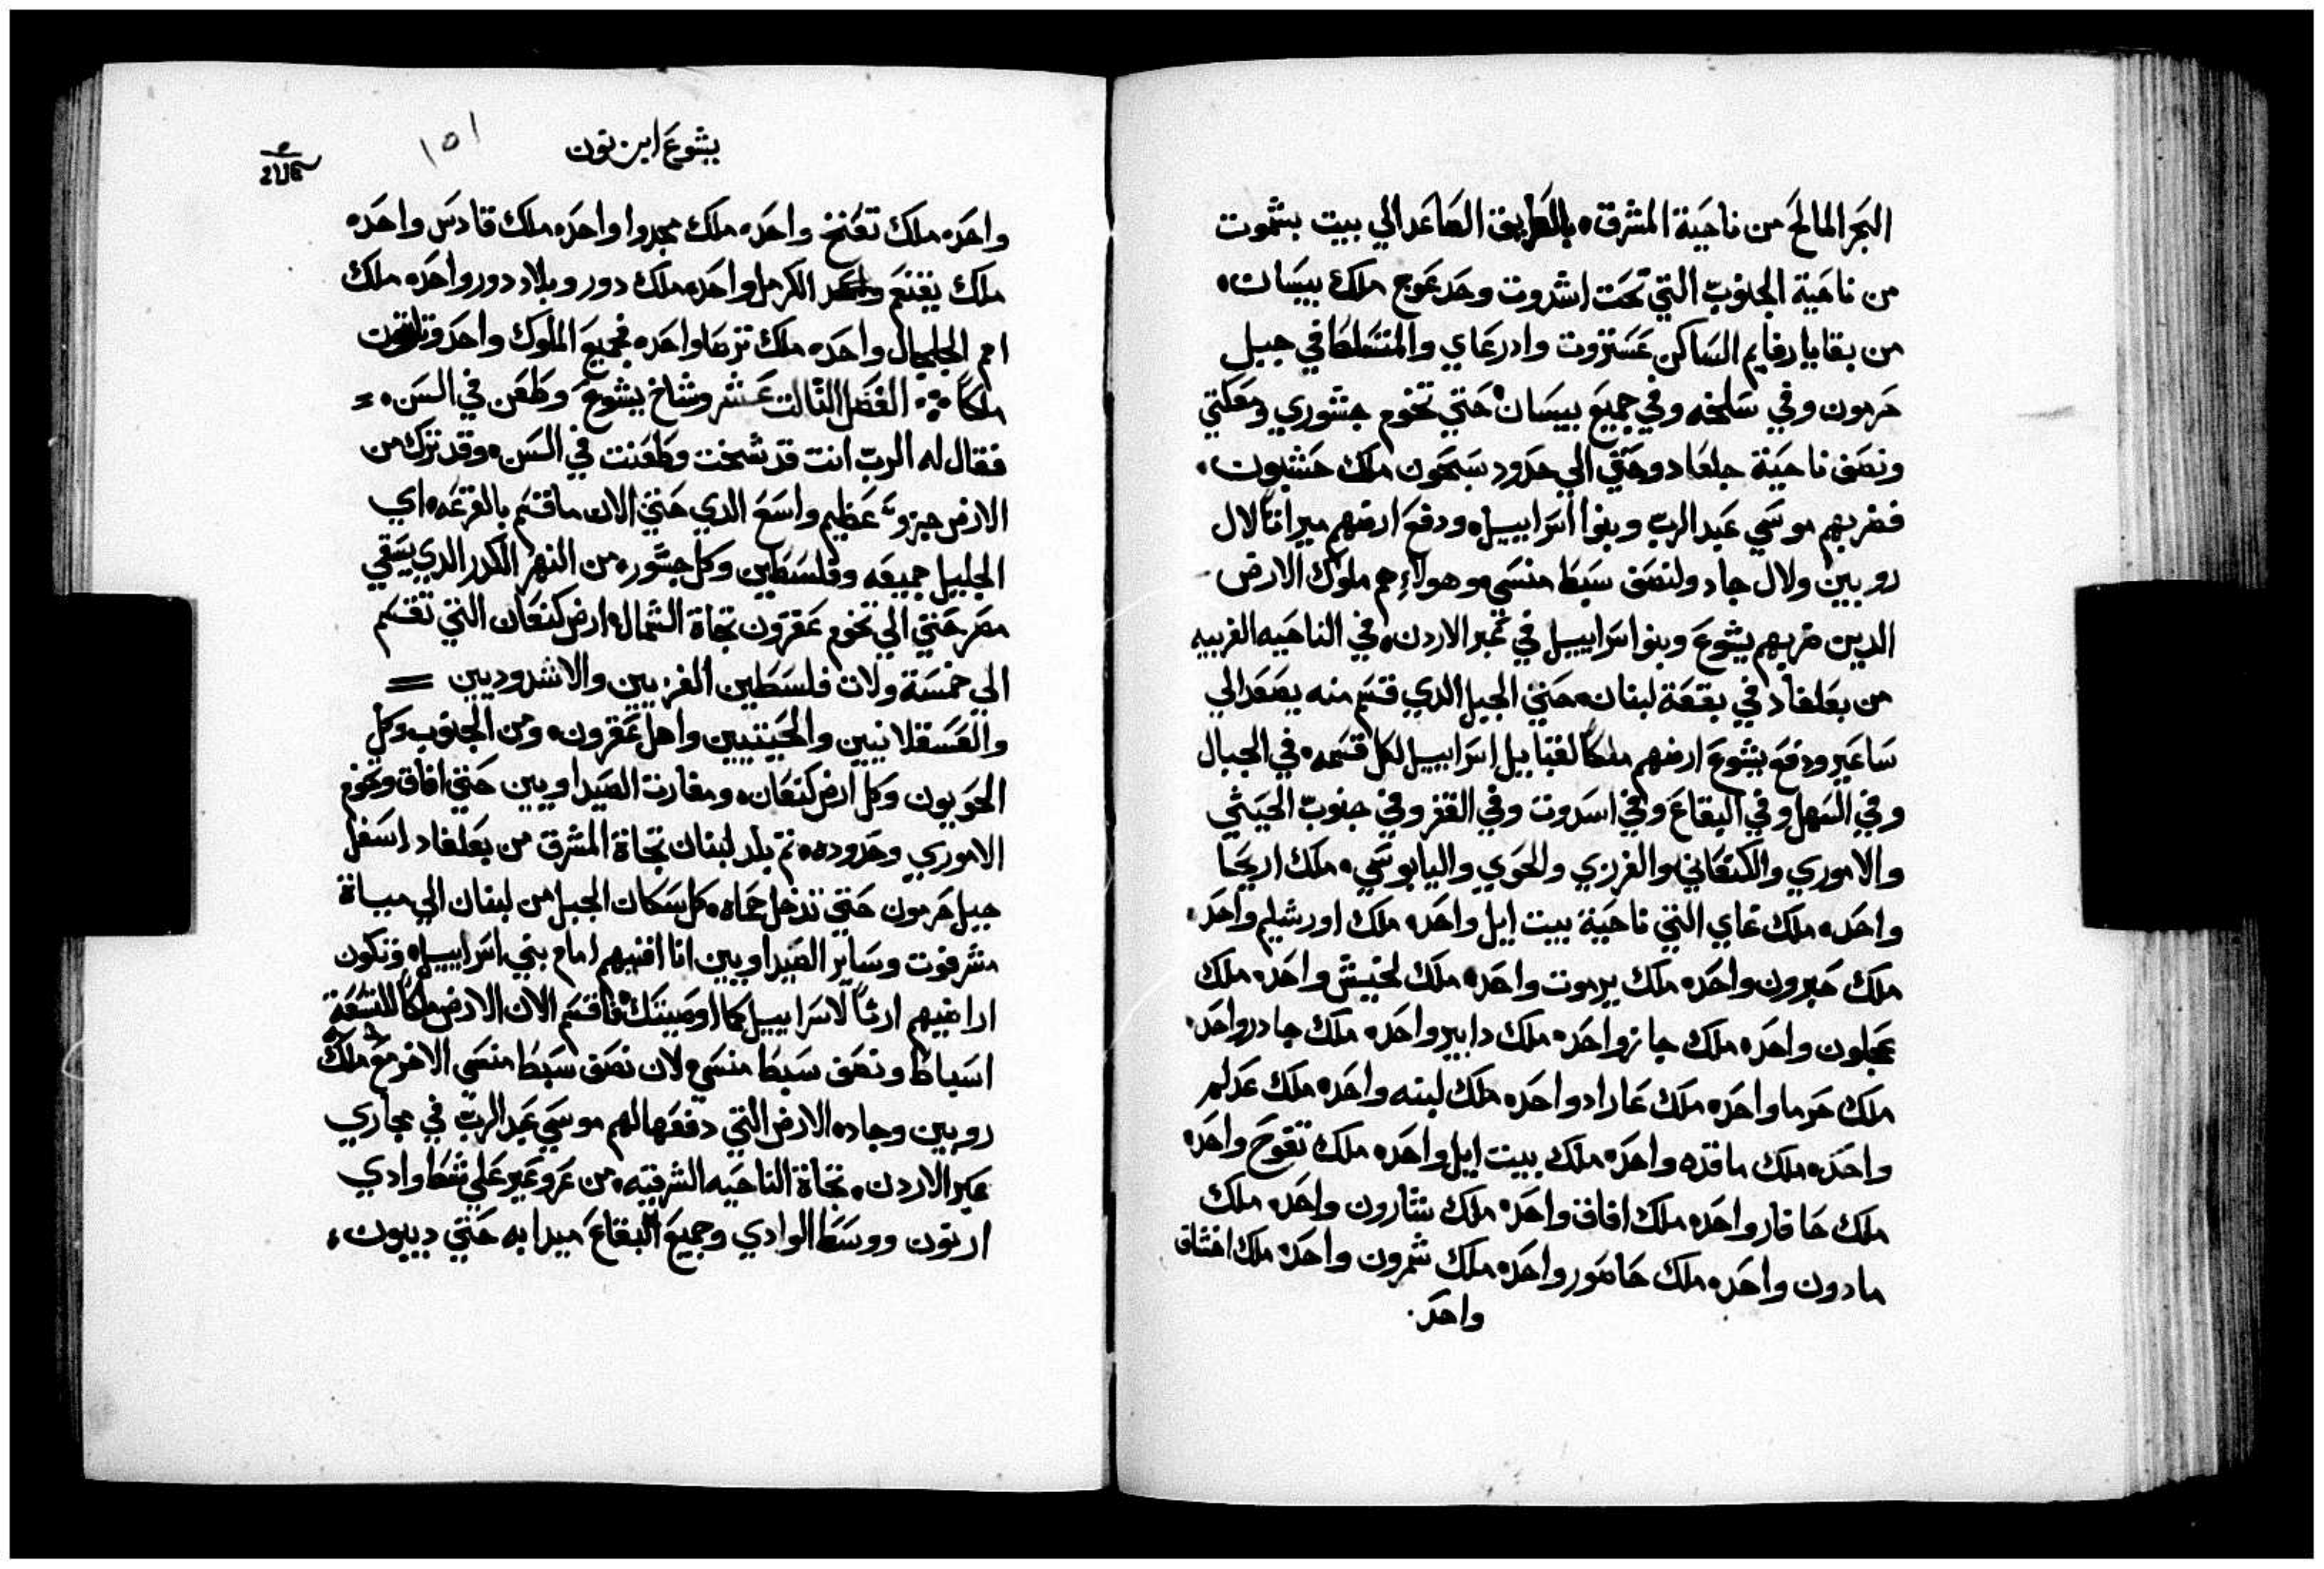 البحر المالح من ناحية المشرق ٠ بالطريق الصاعد الي بيت بشموت
من ناحية الجنوب التي تحت اشدروت وحد عوج ملك بيسان ٠
من بقايا رفايم الساكن عستروت وادرعاي والمتسلط في جبل
حرمون وفي سلخه وفي جميع بيسان ٠ حتي تخوم جشوري ومعكتي
ونصف ناحية جلعاد وحتي الي حدود سيحون ملك حشبون ٠
فضربهم موسي عبد الرب وبنوا اسراييل ٠ ودفع ارضهم ميراثا لال
روبين ولال جاد ولنصف سبط منسي ٠ وهولاء هم ملوك الارض
الدين ضربهم يشوع وبنوا سراييل في عبر الاردن ٠ في الناحيه الغربيه
من بعلغاد في بقعة لبنان ٠ حتي الجبل الدي قسم منه يصعد الي
ساعير ودفع يشوع ارضهم ملكا لقبايل اسراييل لكل قسمه ٠ في الجبال
وفي السهل وفي البقاع وفي اسدروت وفي القفر وفي جنوب الحيثي
والاموري والكنعاني والفرزي والحوي واليابوسي ٠ ملك اريحا
واحد ٠ ملك عاي التي ناحية بيت ايل واحد ٠ ملك اورشليم واحد ٠
ملك حبرون واحد ٠ ملك يرموت واحد ٠ ملك لخيش واحد ٠ ملك
عجلون واحد ٠ ملك جازر واحد ٠ ملك دابير واحد ٠ ملك جادر واحد ٠
ملك حرما واحد ٠ ملك عاراد واحد ٠ ملك لبنه واحد ٠ ملك عدلم
واحد ٠ ملك ماقده واحد ٠ ملك بيت ايل واحد ٠ ملك تفوح واحد ٠
ملك حافار واحد ٠ ملك افاق واحد ٠ ملك شارون واحد ٠ ملك
مادون واحد ٠ ملك حاصور واحد ٠ ملك شمرون واحد ٠ ملك اخشاف
واحد ٠
يشوع ابن نون
١٥١
واحد ٠ ملك تعنخ واحد ٠ ملك مجدوا واحد ٠ ملك قادس واحد ٠
ملك يقنع الكرمل واحد ٠ ملك دور وبلاد دور واحد ٠ ملك
امم الجلجال واحد ٠ ملك ترصا واحد ٠ فجميع الملوك واحد وتلاتون
ملكا ܀ الفصل التالت عشر وشاخ يشوع وطعن في السن ٠ =
فقال له الرب انت قد شخت وطعنت في السن ٠ وقد ترك من
الارض جزو عظيم واسع الدي حتي الان ما قسم بالقرعه ٠ اي
الجليل جميعه وفلسطين وكل جشور ٠ من النهر الكدر الدي يسقي
مصر حتي الي تخوم عقرون تجاة الشمال ٠ ارض كنعان التي تقسم
الي خمسة ولات فلسطين الغزيين والاشدوديين =
والعسقلانيين والجيتيين واهل عقرون ٠ ومن الجنوب وكل
الحويون وكل ارض كنعان ٠ ومغارت الصيداويين حتي افاق وتخوم
الاموري وحدوده ٠ تم بلد لبنان تجاة المشرق من بعلغاد اسفل
جبل حرمون حتي تدخل حماه ٠ كل سكان الجبل من لبنان الي مياة
مشرفوت وساير الصيداويين انا افنيهم امام بني اسراييل ٠ وتكون
اراضيهم ارتا لاسراييل كما اوصيتك ٠ فاقسم الان الارض ملكا للتسعة
اسباط ونصف سبط منسي ٠ لان نصف سبط منسي الاخر مع ملك
روبين وجاد ٠ الارض التي دفعها لهم موسي عبد الرب في مجاري
عبر الاردن ٠ تجاة الناحيه الشرقيه ٠ من عروعير علي شط وادي
ارنون ووسط الوادي وجميع البقاع ميدابه حتي ديبون ٠